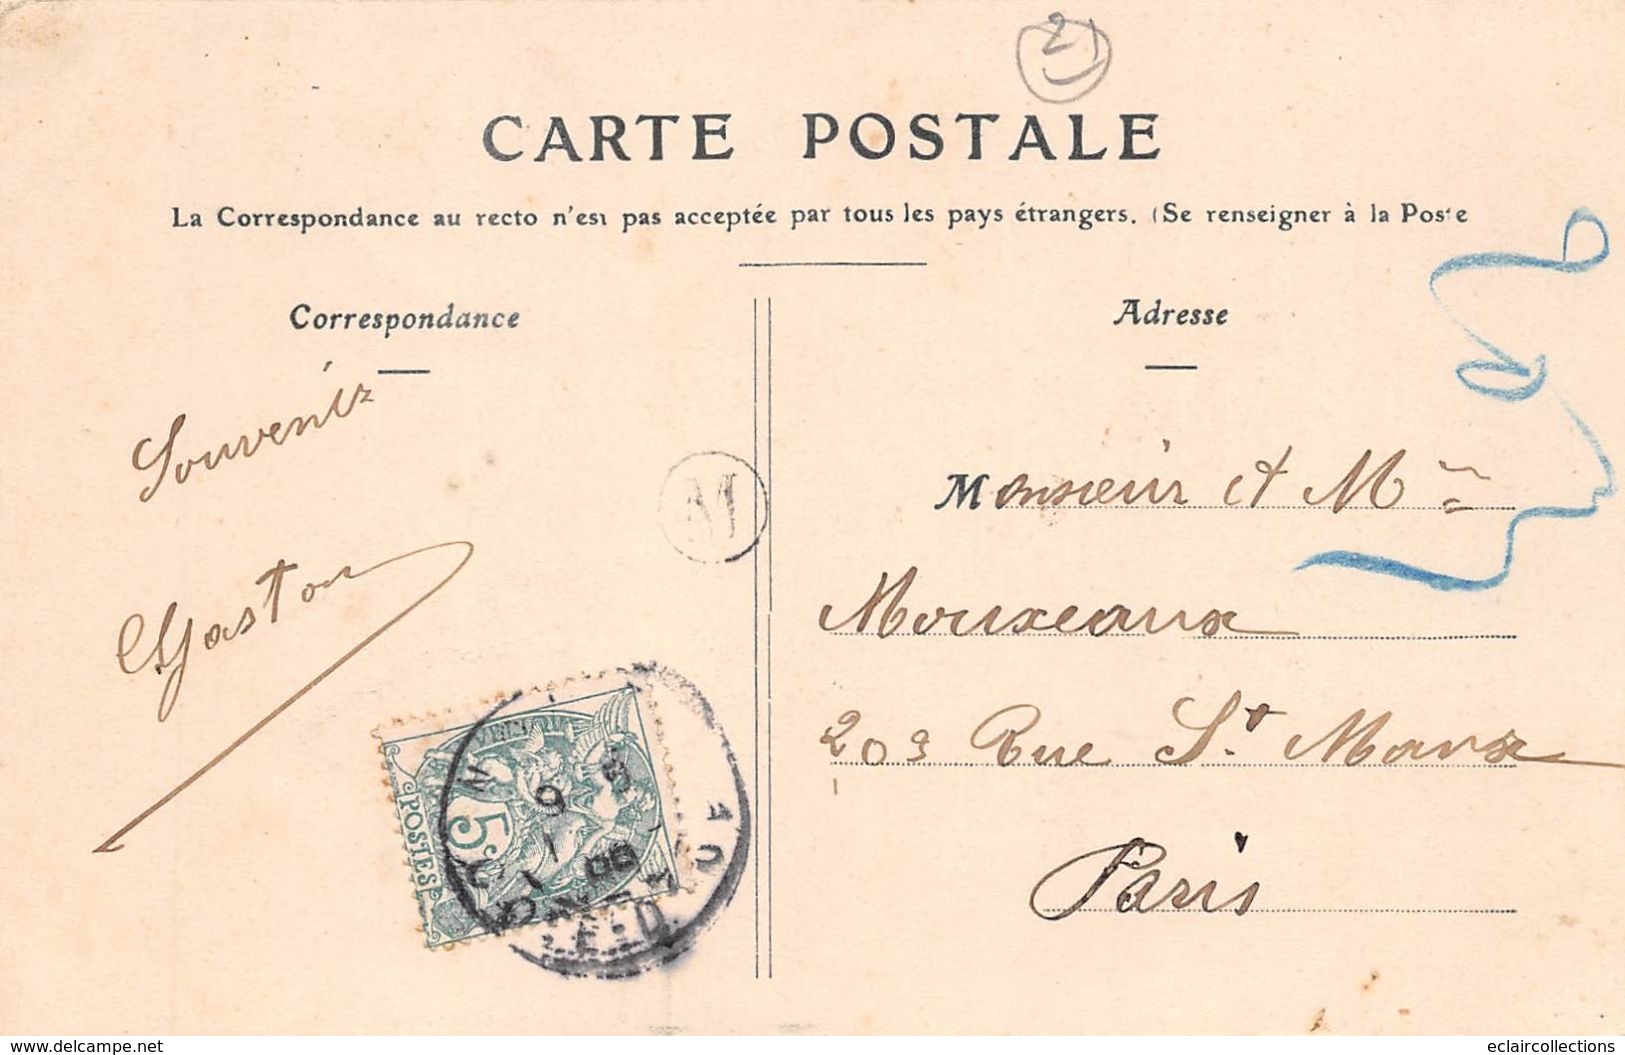 21
CARTE POSTALE
La Correspondance au recto n'est pas acceptée par tous les pays étrangers. (Se renseigner à la Poste
Correspondance
Souvenir
Gaston
M
POSTES
5c
Adresse
Monsieur et Mme
Mouxeaux
203 Rue St Marx
Paris
www.delcampe.net
eclaircollections